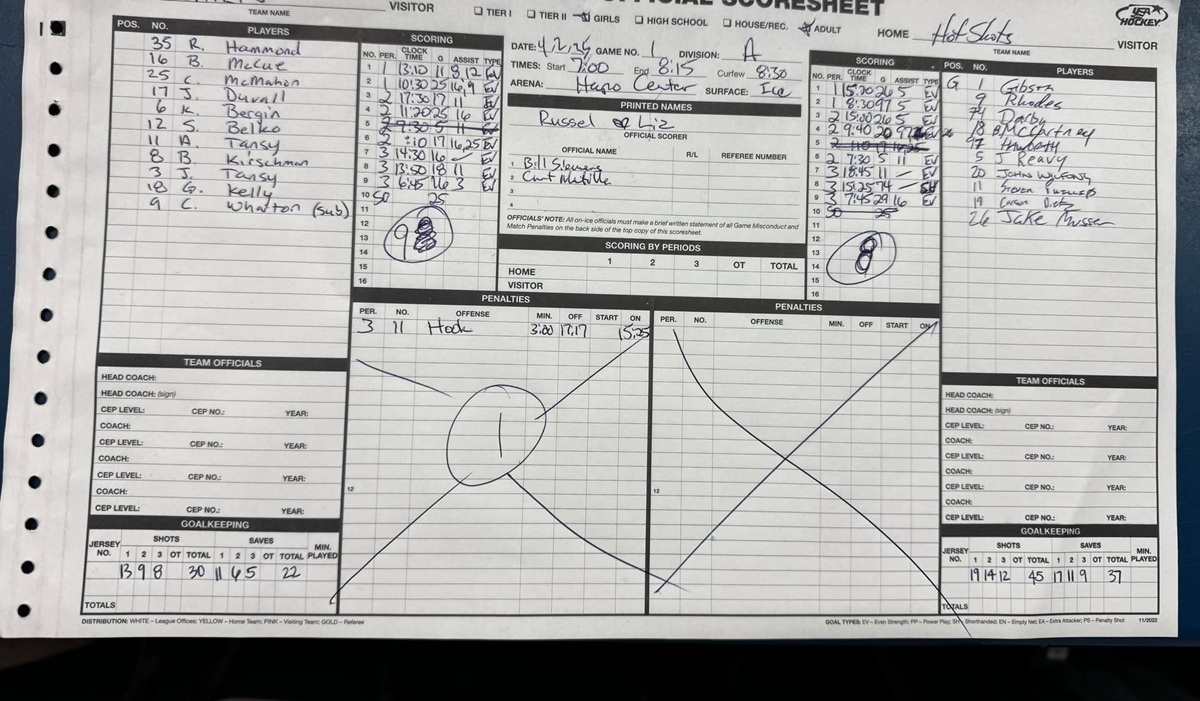 OFFICIAL SCORESHEET
VISITOR
TEAM NAME
☐ TIER I ☐ TIER II ☐ GIRLS ☐ HIGH SCHOOL ☐ HOUSE/REC. ☐ ADULT
HOME Hot Shots
TEAM NAME
VISITOR
USA HOCKEY
POS. NO. PLAYERS
35 R. Hammond
16 B. McCue
25 C. McMahon
17 J. Duvall
6 K. Bergin
12 S. Belko
11 A. Tansy
8 B. Kirschman
3 J. Tansy
18 G. Kelly
9 C. Wharton (sub)
SCORING
NO. PER. CLOCK TIME G ASSIST TYPE
1 1 13:10 11 8, 12 EV
2 1 10:30 25 16, 9 EV
3 2 17:30 17 11 EV
4 2 11:20 25 16 EV
5 2 7:30 5 11 EV
6 2 :10 17 16,25 EV
7 3 14:30 16 EV
8 3 13:50 18 11 EV
9 3 6:45 16 3 EV
10 SO 25
11
12
13
14
15
16
9
DATE: 4,2,25 GAME NO. 1 DIVISION: A
TIMES: Start 7:00 End 8:15 Curfew 8:30
ARENA: Hapo Center SURFACE: Ice
PRINTED NAMES
Russel or Liz
OFFICIAL SCORER
OFFICIAL NAME R/L REFEREE NUMBER
1 Bill
2 Curt
3
4
OFFICIALS' NOTE: All on-ice officials must make a brief written statement of all Game Misconduct and
Match Penalties on the back side of the top copy of this scoresheet.
SCORING BY PERIODS
1 2 3 OT TOTAL
HOME
VISITOR
SCORING
NO. PER. CLOCK TIME G ASSIST TYPE
1 1 15:20 26 5 EV
2 1 8:30 97 5 EV
3 2 15:00 26 5 EV
4 2 9:40 20 97 EV
5 2 :10 17 16,25
6 2 7:30 5 11 EV
7 3 18:45 11 EV
8 3 15:25 74 SH
9 3 7:45 29 16 EV
10 SO 25
11
12
13
14
15
16
8
POS. NO. PLAYERS
G 1 Gibson
9 Rhodes
74 Darby
18 B McCartney
97
5 J Reavy
20 John
11 Steven
19 Carson
26 Jake
PENALTIES
PER. NO. OFFENSE MIN. OFF START ON
3 11 Hook 3:00 17:17 15:25
12
1
PENALTIES
PER. NO. OFFENSE MIN. OFF START ON
12
TEAM OFFICIALS
HEAD COACH:
HEAD COACH: (sign)
CEP LEVEL: CEP NO.: YEAR:
COACH:
CEP LEVEL: CEP NO.: YEAR:
COACH:
CEP LEVEL: CEP NO.: YEAR:
COACH:
CEP LEVEL: CEP NO.: YEAR:
GOALKEEPING
JERSEY NO. SHOTS 1 2 3 OT TOTAL SAVES 1 2 3 OT TOTAL MIN. PLAYED
13 9 8 30 11 6 5 22
TOTALS
TEAM OFFICIALS
HEAD COACH:
HEAD COACH: (sign)
CEP LEVEL: CEP NO.: YEAR:
COACH:
CEP LEVEL: CEP NO.: YEAR:
COACH:
CEP LEVEL: CEP NO.: YEAR:
COACH:
CEP LEVEL: CEP NO.: YEAR:
GOALKEEPING
JERSEY NO. SHOTS 1 2 3 OT TOTAL SAVES 1 2 3 OT TOTAL MIN. PLAYED
19 14 12 45 17 11 9 37
TOTALS
DISTRIBUTION: WHITE – League Offices; YELLOW – Home Team; PINK – Visiting Team; GOLD – Referee
GOAL TYPES: EV – Even Strength; PP – Power Play; SH – Shorthanded; EN – Empty Net; EA – Extra Attacker; PS – Penalty Shot 11/2022